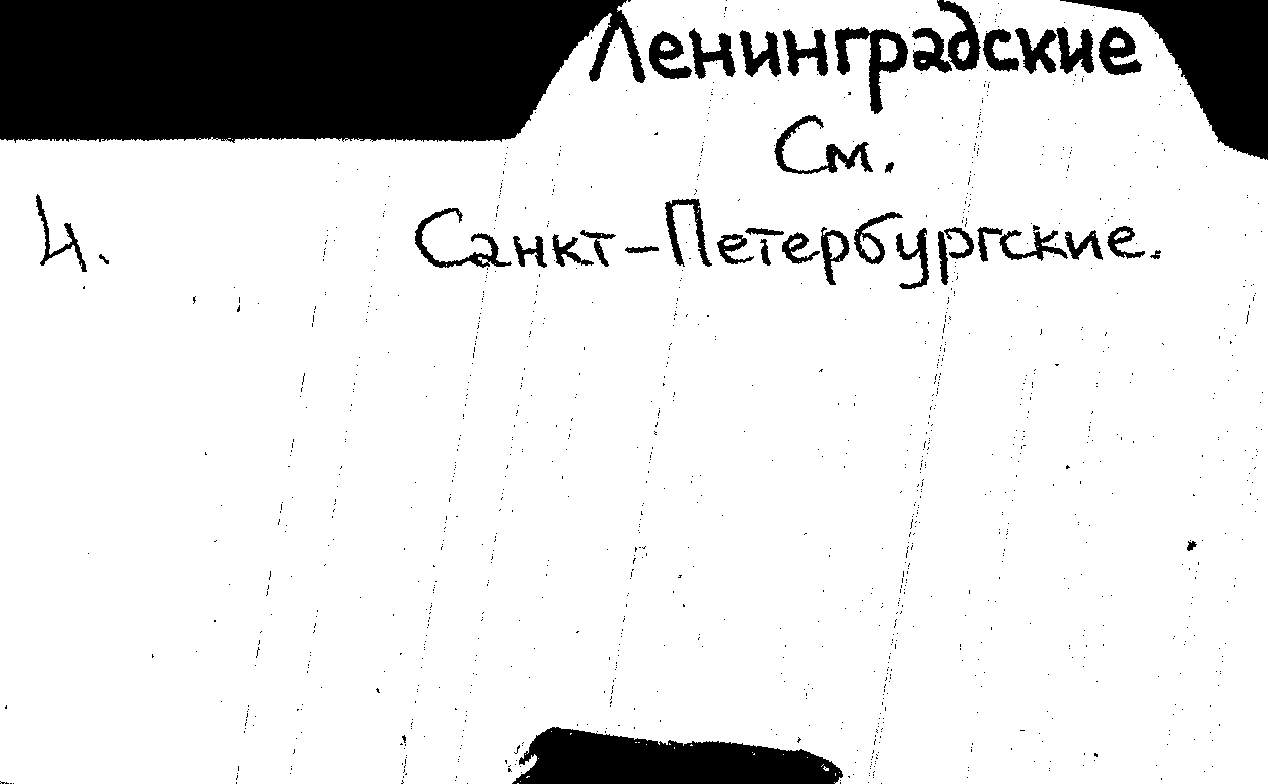 Ленинградские
См.
4. Санкт-Петербургские.